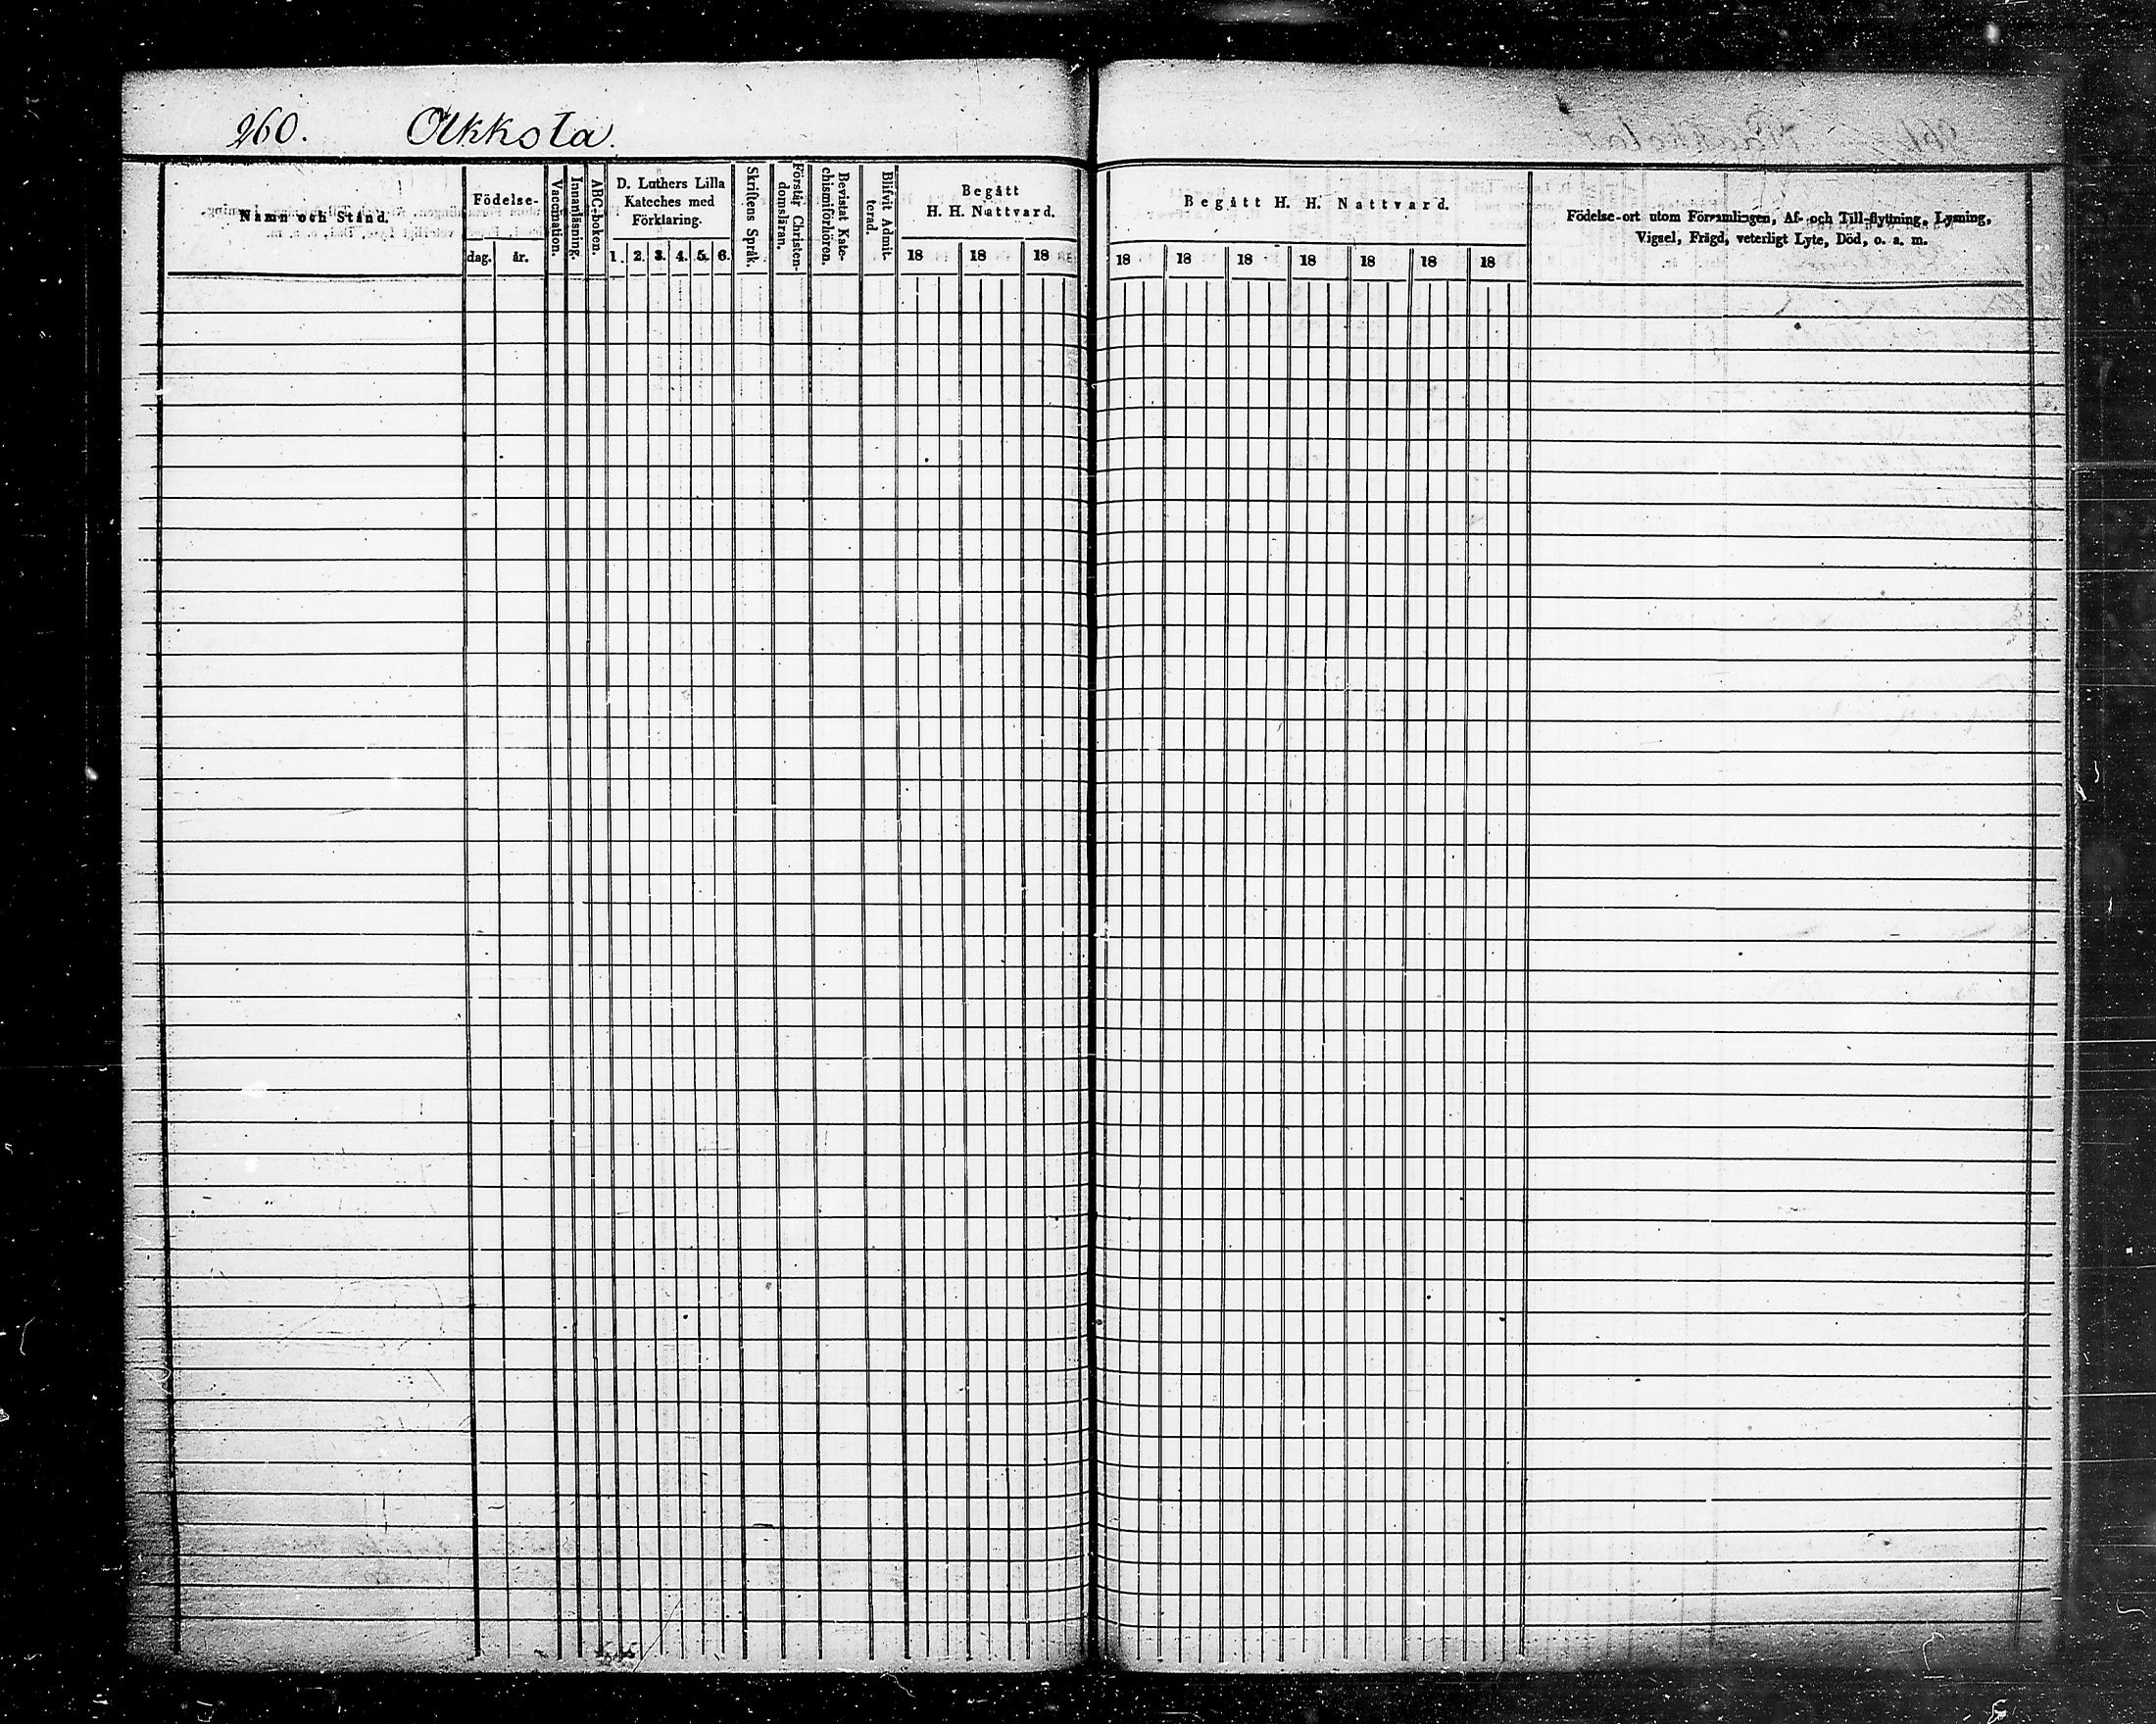 260. Akkola.
Namn och Stånd.
Födelse-
dag. år.
Vaccination.
Innanläsning.
ABC-boken.
D. Luthers Lilla
Kateches med
Förklaring.
1. 2. 3. 4. 5. 6.
Skriftens Språk.
Förstår Christen-
domsläran.
Bevistat Kate-
chismiförhören.
Blifvit Admit-
terad.
Begått
H. H. Nattvard.
18 18 18
Begått H. H. Nattvard.
18 18 18 18 18 18 18
Födelse-ort utom Församlingen, Af- och Till-flyttning, Lysning,
Vigsel, Frägd, veterligt Lyte, Död, o. s. m.